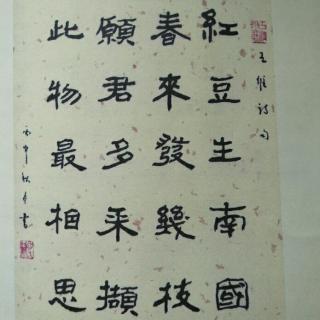 王維詩句
紅豆生南國
春來發幾枝
願君多采擷
此物最相思
丙申秋月書